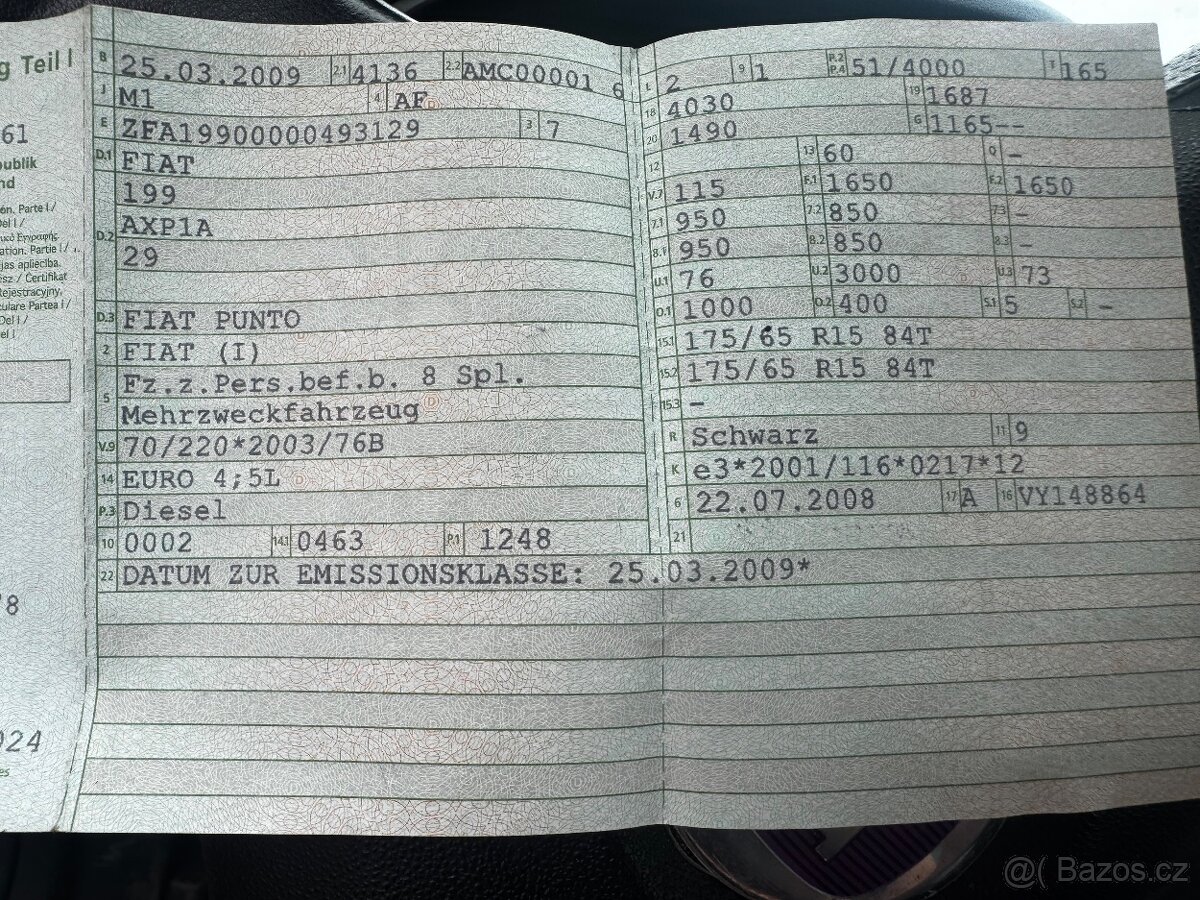 g Teil I
61
publik
nd
ón. Parte I /
Del I /
ation. Partie I /
jas apliecība.
ész / Certifikat
Rejestracyjny.
culare Partea I /
Del I /
el I /
8
024
es
B 25.03.2009 2.1 4136 2.2 AMC00001 6
J M1 4 AF
E ZFA19900000493129 3 7
D.1 FIAT
199
D.2 AXP1A
29
D.3 FIAT PUNTO
2 FIAT (I)
5 Fz.z.Pers.bef.b. 8 Spl.
Mehrzweckfahrzeug
V.9 70/220*2003/76B
14 EURO 4;5L
P.3 Diesel
10 0002 14.1 0463 P.1 1248
22 DATUM ZUR EMISSIONSKLASSE: 25.03.2009*
L 2 9 1 P.2 P.4 51/4000 T 165
18 4030 19 1687
20 1490 G 1165--
12 13 60 Q -
V.7 115 F.1 1650 F.2 1650
7.1 950 7.2 850 7.3 -
8.1 950 8.2 850 8.3 -
U.1 76 U.2 3000 U.3 73
O.1 1000 O.2 400 S.1 5 S.2 -
15.1 175/65 R15 84T
15.2 175/65 R15 84T
15.3 -
R Schwarz 11 9
K e3*2001/116*0217*12
6 22.07.2008 17 A 16 VY148864
21
@( Bazos.cz